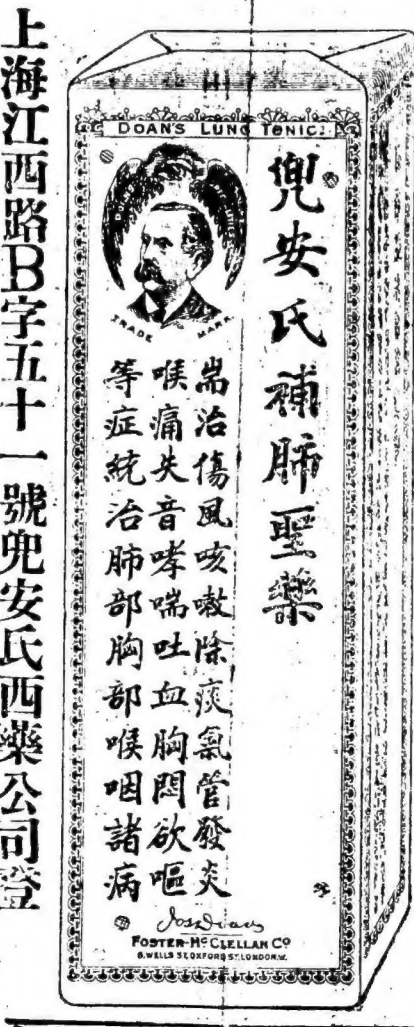 DOAN'S LUNG TONIC.
兜安氏補肺聖藥
TRADE MARK
耑治傷風咳嗽除痰氣管發炎
喉痛失音哮喘吐血胸悶欲嘔
等症統治肺部胸部喉咽諸病
FOSTER-McCLELLAN Co
8, WELLS ST. OXFORD ST. LONDON. W.
上海江西路B字五十一號兜安氏西藥公司登